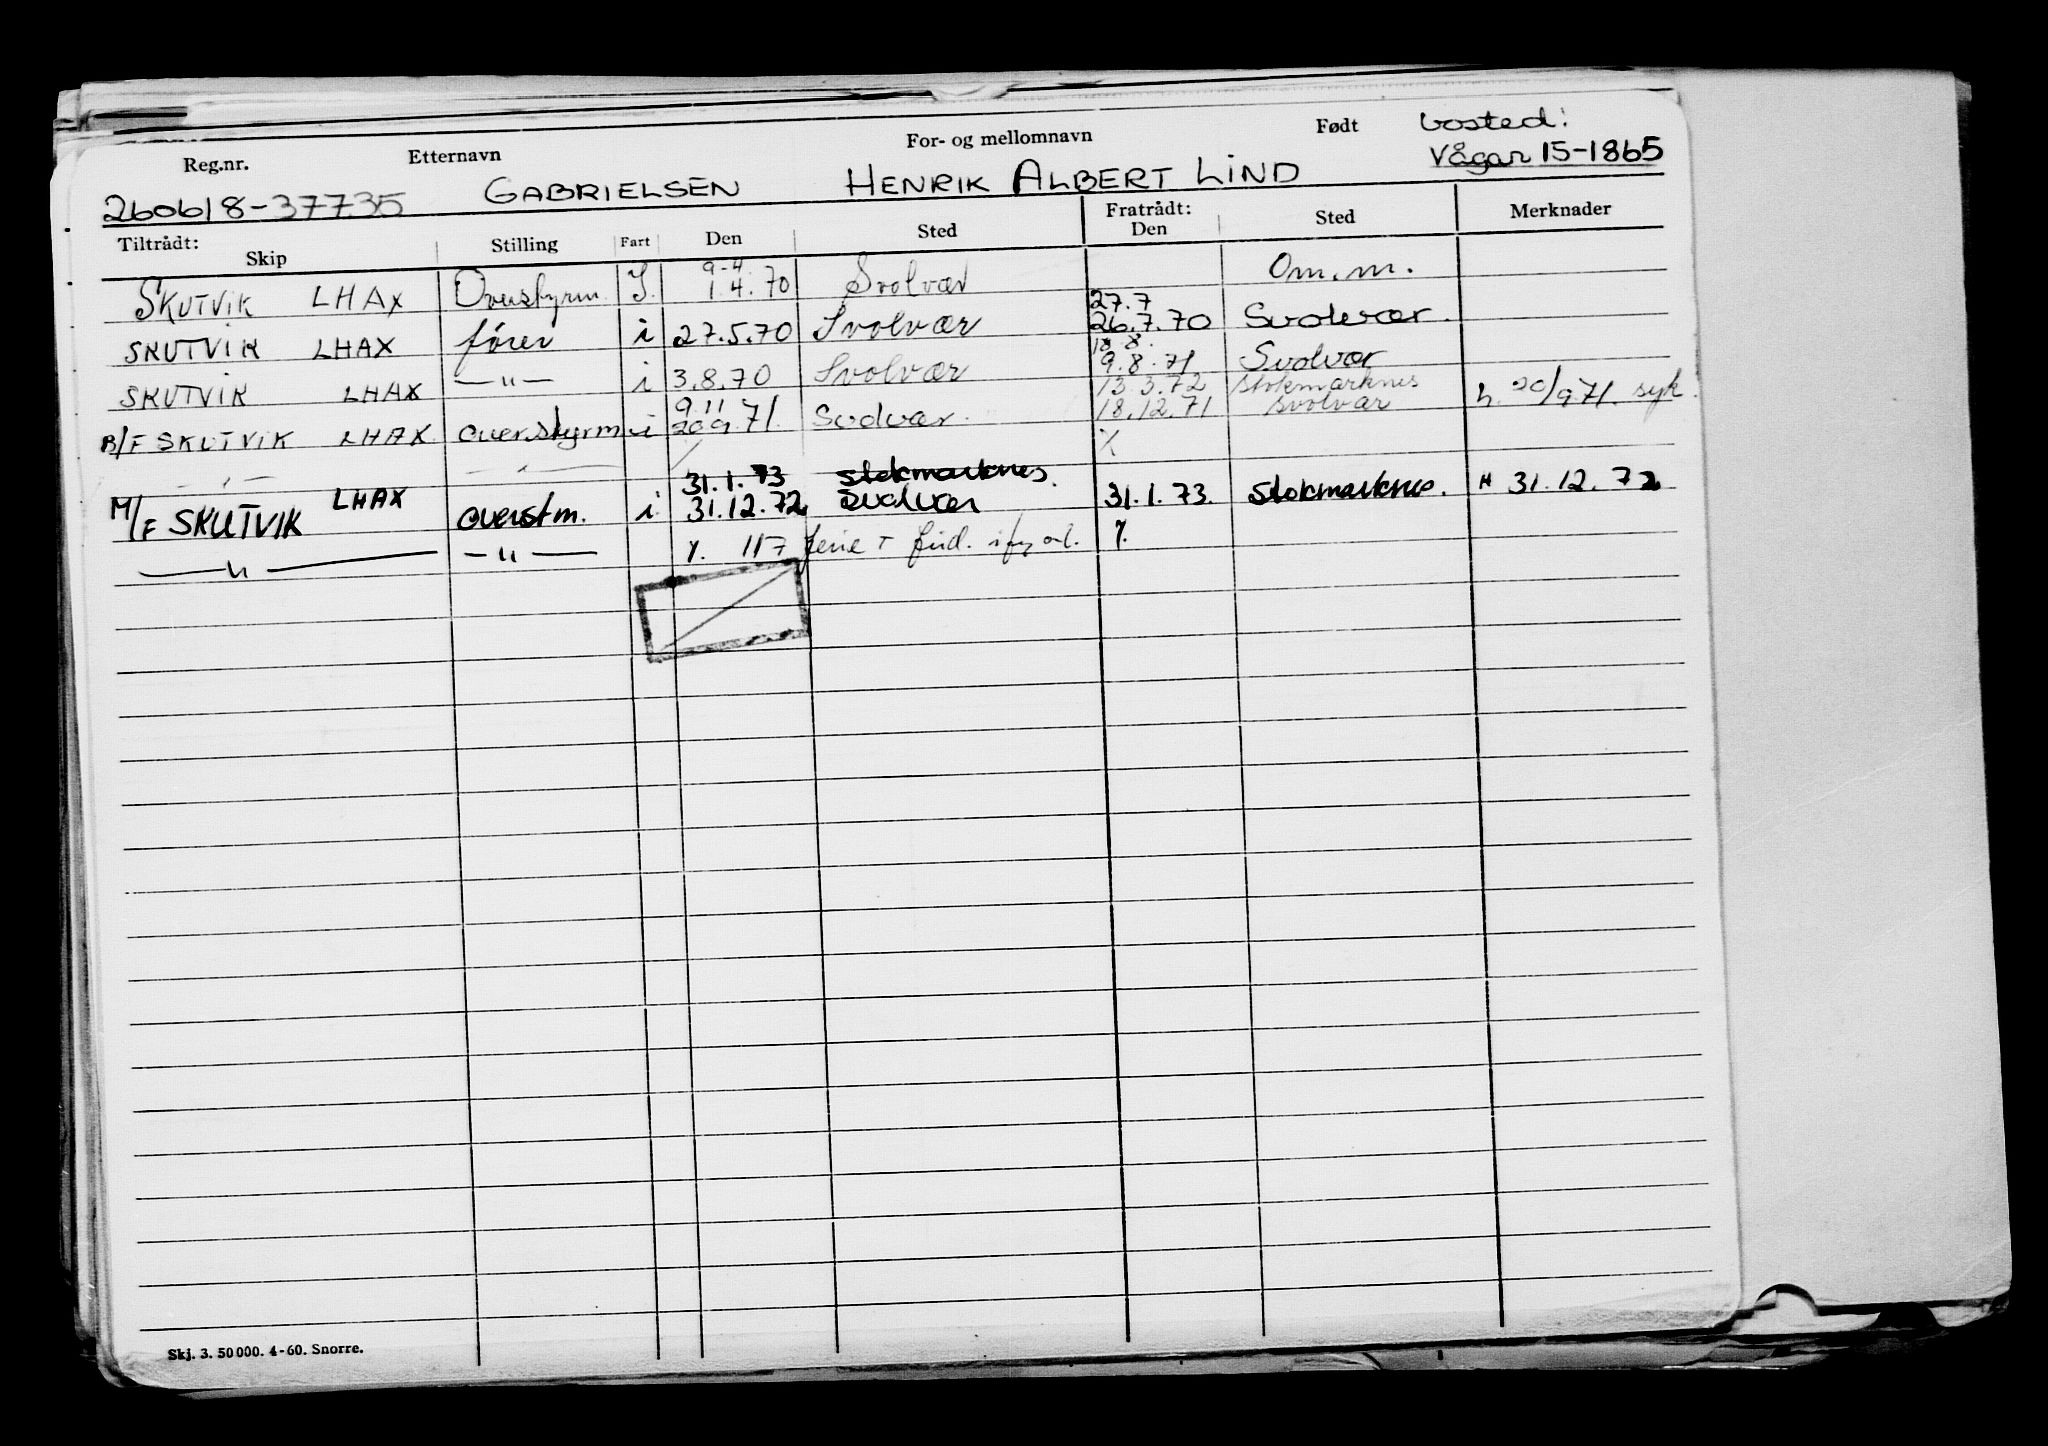 Reg.nr. Etternavn For- og mellomnavn Født bosted:
260618-37735 GABRIELSEN HENRIK ALBERT LIND Vågan 15-1865
Tiltrådt: Skip Stilling Fart Den Sted Fratrådt: Den Sted Merknader
9-4.
SKUTVIK LHAX Overstyrm. I. 1.4.70 Svolvær Om.m.
27.7
SKUTVIK LHAX fører i 27.5.70 Svolvær 26.7.70 Svolvær.
SKUTVIK LHAX —"— i 3.8.70 Svolvær 9.8.71 Svolvær
9.11 13.3.72 Stokmarknes
B/F SKUTVIK LHAX overstyrm i 20.9.71. Svolvær. 18.12.71 Svolvær h. 20/9 71. syk.
—"— —"— % %
31.1.73 stokmarknes.
M/F SKUTVIK LHAX overstm. i 31.12.72 Svolvær 31.1.73. Stokmarknes. H 31.12.72
—"— —"— %. 117 ferie + %.
Skj. 3. 50 000. 4-60. Snorre.